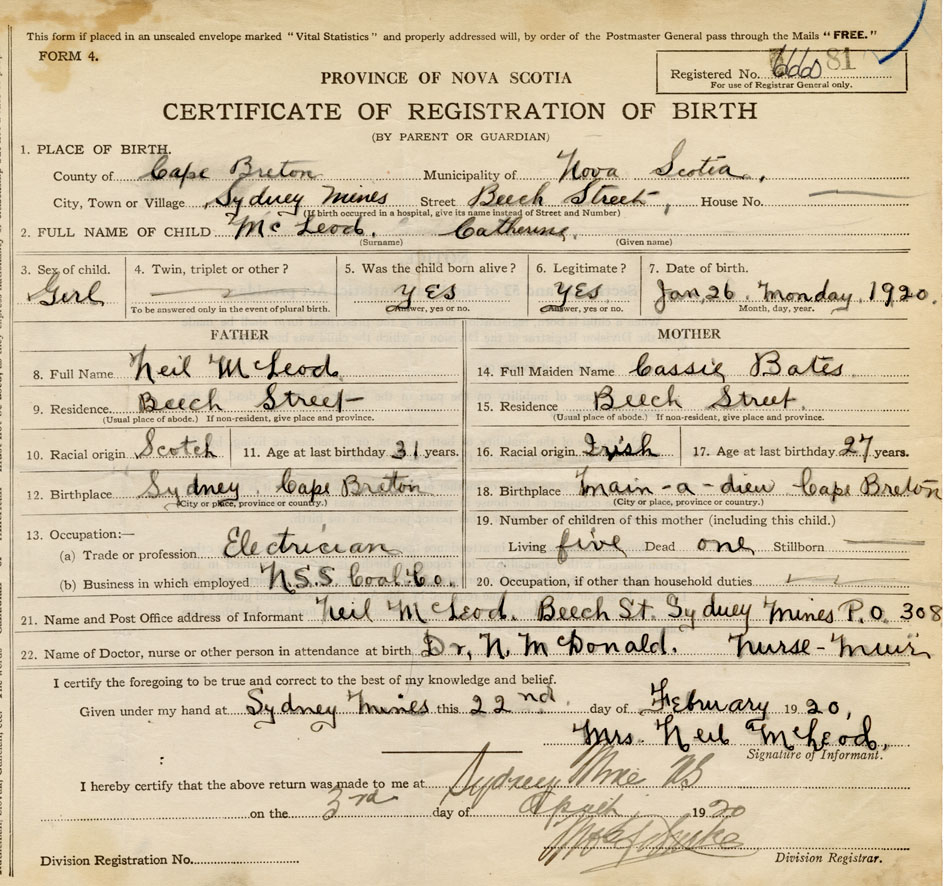 This form if placed in an unsealed envelope marked "Vital Statistics" and properly addressed will, by order of the Postmaster General pass through the Mails "FREE."
FORM 4.
Registered No. 81
For use of Registrar General only.
PROVINCE OF NOVA SCOTIA
CERTIFICATE OF REGISTRATION OF BIRTH
(BY PARENT OR GUARDIAN)
1. PLACE OF BIRTH.
County of Cape Breton Municipality of Nova Scotia,
City, Town or Village Sydney Mines Street Beech Street, House No.
(If birth occurred in a hospital, give its name instead of Street and Number)
2. FULL NAME OF CHILD McLeod. Catherine.
(Surname) (Given name)
3. Sex of child. 4. Twin, triplet or other? 5. Was the child born alive? 6. Legitimate? 7. Date of birth.
Girl YES YES Jan 26. Monday, 1920.
To be answered only in the event of plural birth. Answer, yes or no. Answer, yes or no. Month, day, year.
FATHER MOTHER
8. Full Name Neil McLeod. 14. Full Maiden Name Cassie Bates.
9. Residence. Beech Street 15. Residence Beech Street.
(Usual place of abode.) If non-resident, give place and province. (Usual place of abode.) If non-resident, give place and province.
10. Racial origin Scotch 11. Age at last birthday 31 years. 16. Racial origin Irish 17. Age at last birthday 27 years.
12. Birthplace Sydney, Cape Breton 18. Birthplace Main-a-dieu Cape Breton
(City or place, province or country.) (City or place, province or country.)
13. Occupation:— 19. Number of children of this mother (including this child.)
(a) Trade or profession Electrician Living five Dead one Stillborn
(b) Business in which employed N.S.S Coal Co. 20. Occupation, if other than household duties
21. Name and Post Office address of Informant Neil McLeod. Beech St. Sydney Mines P.O. 308
22. Name of Doctor, nurse or other person in attendance at birth Dr, N. McDonald. Nurse-Muir
I certify the foregoing to be true and correct to the best of my knowledge and belief.
Given under my hand at Sydney Mines this 22nd day of February 1920,
Mrs. Neil McLeod,
Signature of Informant.
I hereby certify that the above return was made to me at Sydney Mines NS
on the 3rd day of April 1920
Division Registration No. Division Registrar.